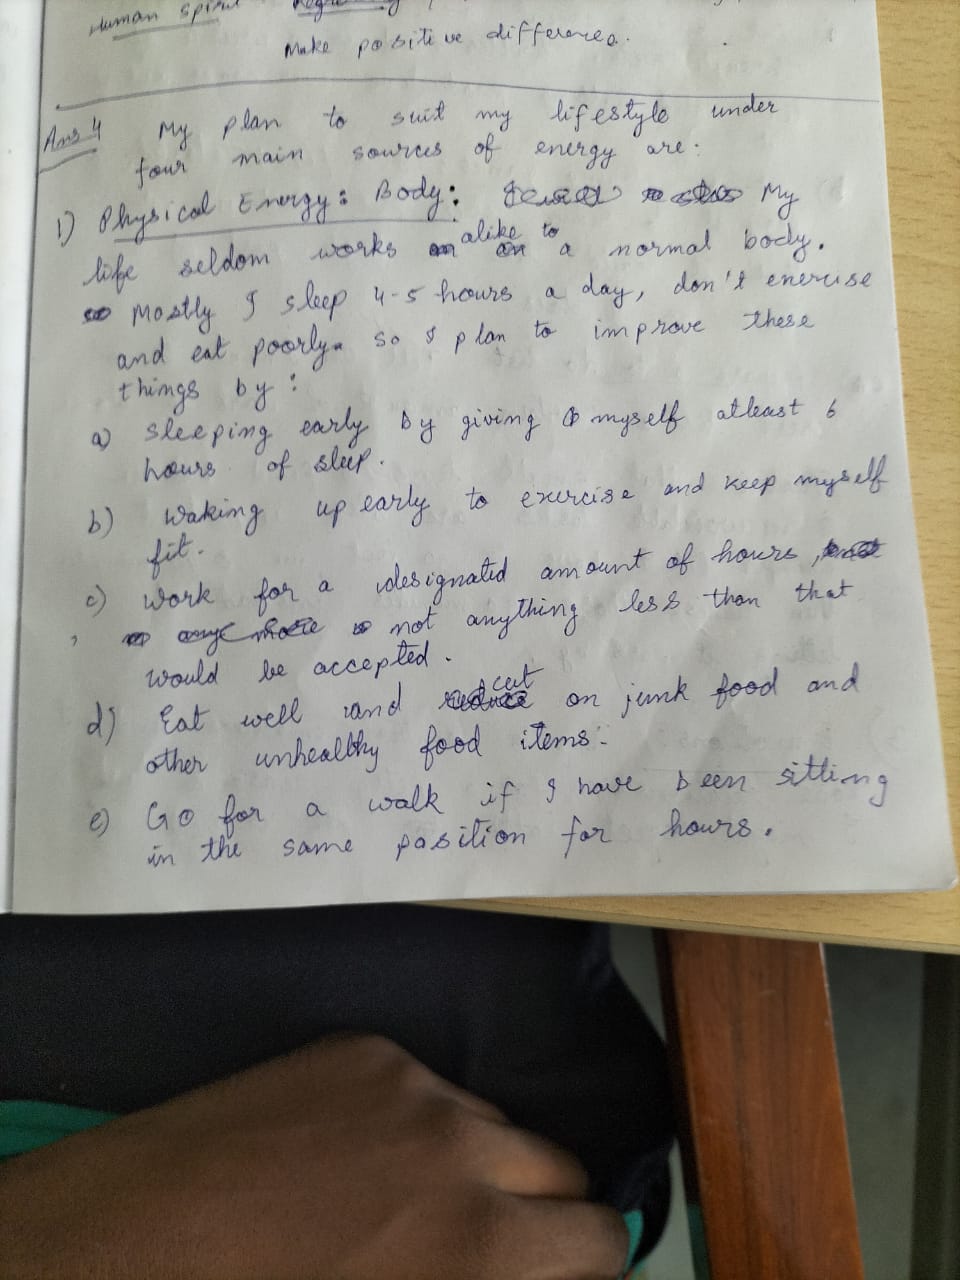 Human spirit
Make positive difference.
Ans 4 My plan to suit my lifestyle under
four main sources of energy are:
1) Physical Energy: Body: My
life seldom works alike to a normal body.
Mostly I sleep 4-5 hours a day, don't exercise
and eat poorly. So I plan to improve these
things by:
a) Sleeping early by giving myself atleast 6
hours of sleep.
b) Waking up early to exercise and keep myself
fit.
c) Work for a designated amount of hours,
not anything less than that
would be accepted.
d) Eat well and cut on junk food and
other unhealthy food items.
e) Go for a walk if I have been sitting
in the same position for hours.